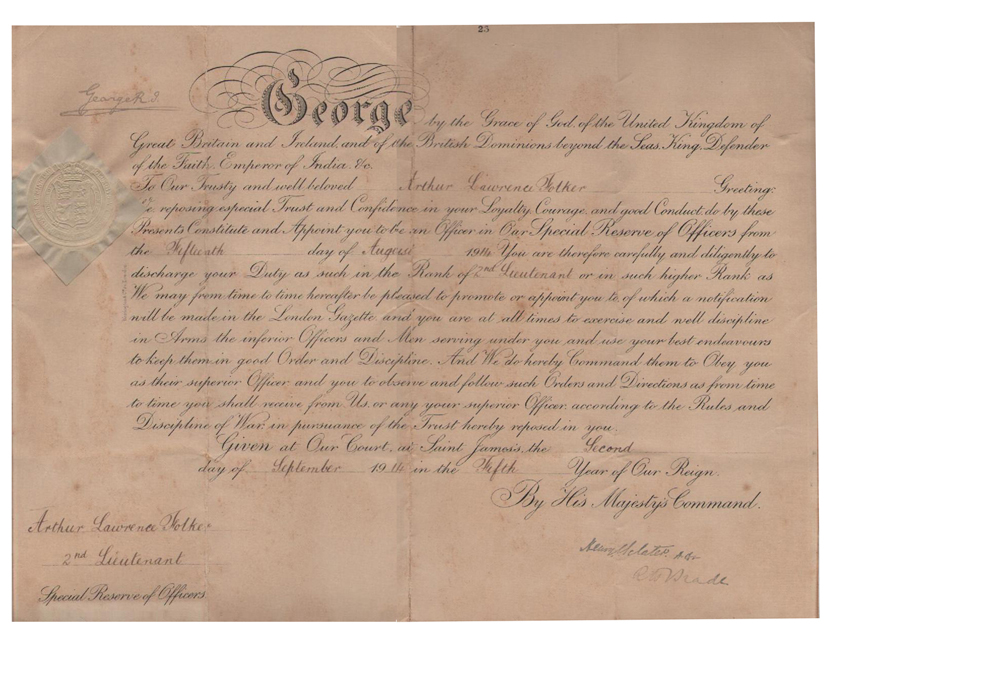 23
George R.I.
George by the Grace of God, of the United Kingdom of
Great Britain and Ireland, and of the British Dominions beyond the Seas, King, Defender
of the Faith, Emperor of India, &c.
To Our Trusty and well beloved Arthur Lawrence Greeting:
We reposing especial Trust and Confidence in your Loyalty, Courage, and good Conduct, do by these
Presents Constitute and Appoint you to be an Officer in Our Special Reserve of Officers from
the Fifteenth day of August 1914. You are therefore carefully and diligently to
discharge your Duty as such in the Rank of 2nd Lieutenant or in such higher Rank as
We may from time to time hereafter be pleased to promote or appoint you to, of which a notification
will be made in the London Gazette, and you are at all times to exercise and well discipline
in Arms the inferior Officers and Men serving under you and use your best endeavours
to keep them in good Order and Discipline. And We do hereby Command them to Obey you
as their superior Officer and you to observe and follow such Orders and Directions as from time
to time you shall receive from Us, or any your superior Officer, according to the Rules and
Discipline of War, in pursuance of the Trust hereby reposed in you.
Given at Our Court, at Saint James's, the Second
day of September 1914 in the Fifth Year of Our Reign.
By His Majesty's Command.
Arthur Lawrence
2nd Lieutenant
Special Reserve of Officers